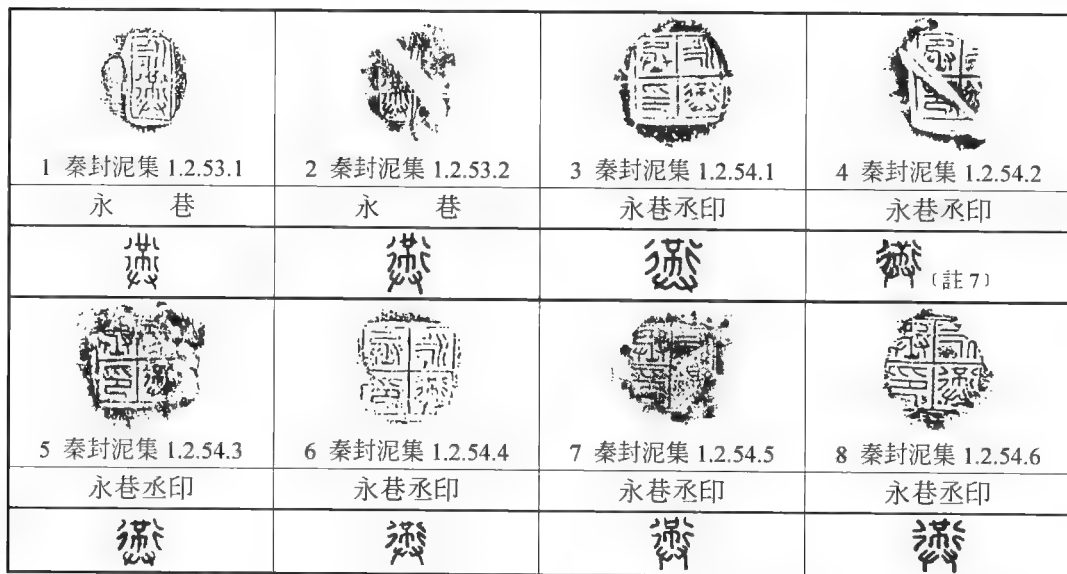 1 秦封泥集 1.2.53.1
2 秦封泥集 1.2.53.2
3 秦封泥集 1.2.54.1
4 秦封泥集 1.2.54.2
永 巷
永 巷
永巷丞印
永巷丞印
〔註 7〕
5 秦封泥集 1.2.54.3
6 秦封泥集 1.2.54.4
7 秦封泥集 1.2.54.5
8 秦封泥集 1.2.54.6
永巷丞印
永巷丞印
永巷丞印
永巷丞印